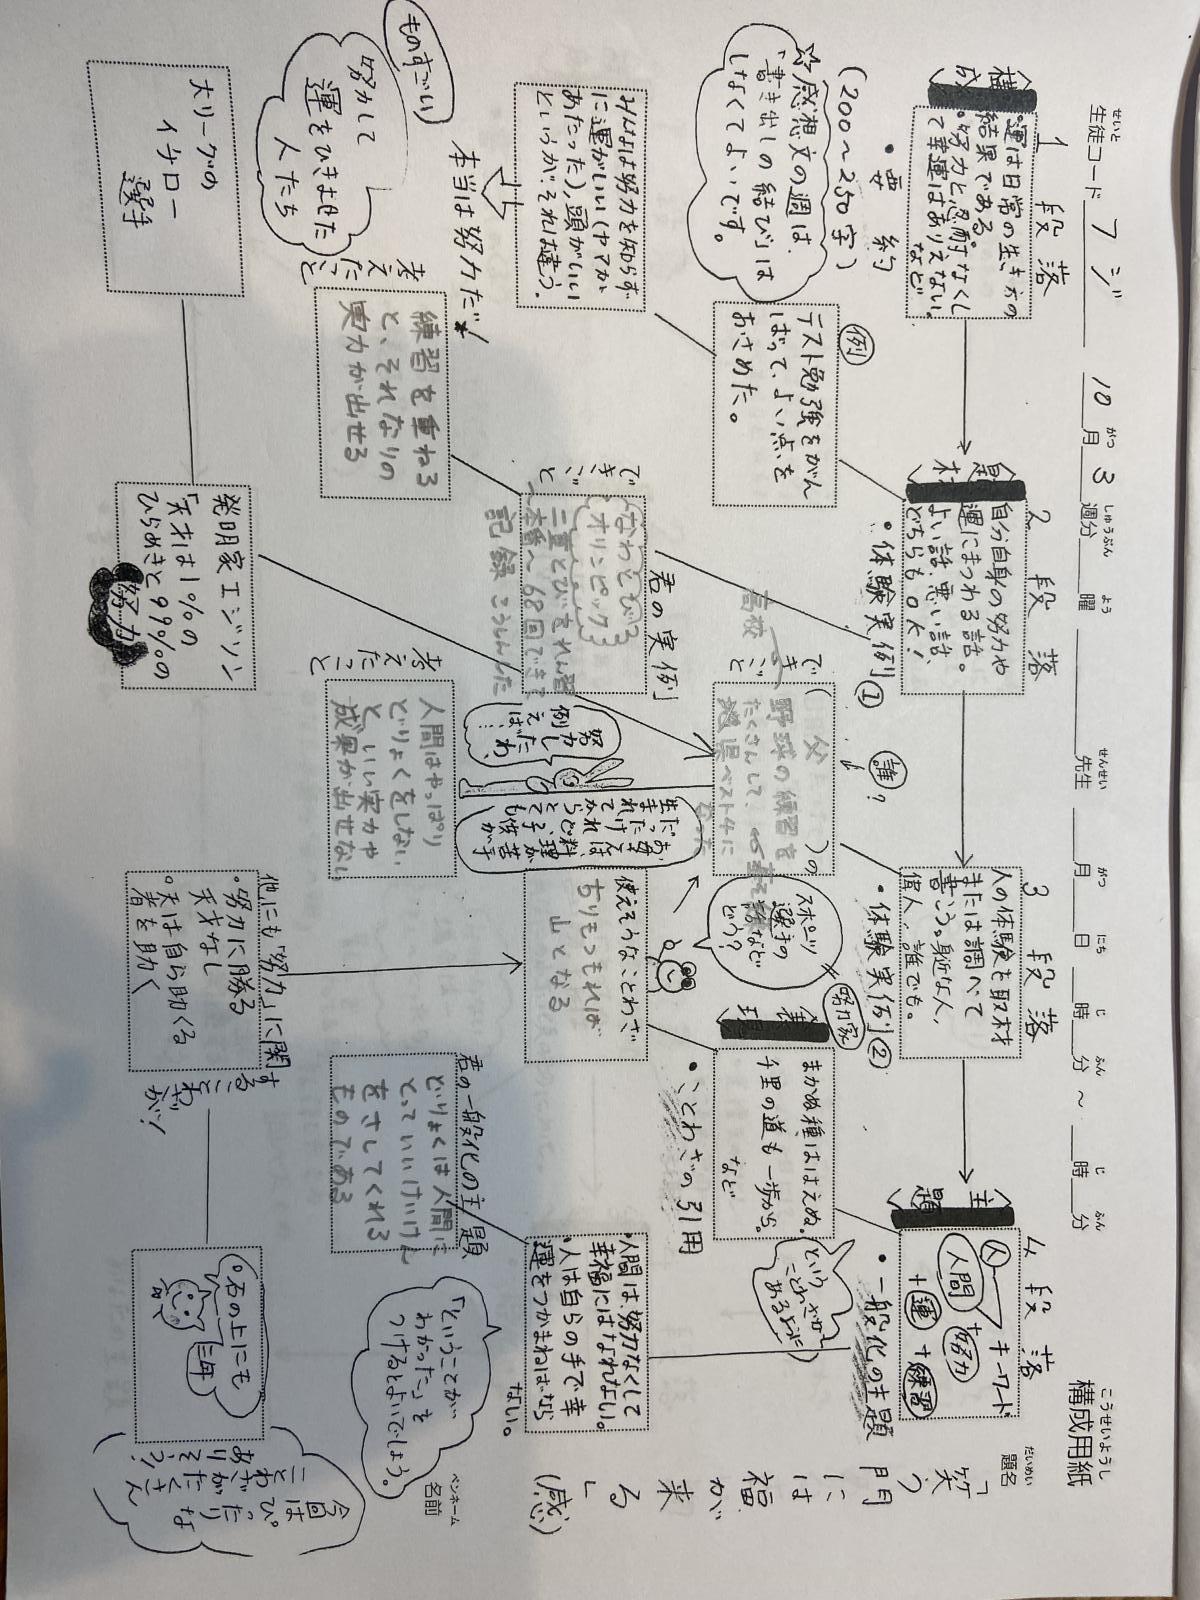 構成用紙
題名 「笑う門には福が来る」(感)
ペンネーム
名前
生徒コード フジ 10月3週分 曜 先生 月 日 時 分 ～ 時 分
1段落
構成
・運は日常の生き方の
結果である
・努力と忍耐なくし
て幸運はありえない。
など
・要約
(200～250字)
☆感想文の週は、
「書き出しの結び」は
しなくてよいです。
みんなは努力を知らず
に運がいい(ヤマが
あたった)、頭がいい
というがそれは違う。
本当は努力だ!
ものすごい
努力して
運をひきよせた
人たち
大リーグの
イチロー
選手
2段落
題材
自分自身の努力や
運にまつわる話。
よい話、悪い話、
どちらもOK!
・体験実例①
例
テスト勉強をがん
ばって、よい点を
おさめた。
君の実例
できごと
なわとび
オリンピック
二重とびをれん習
本番へ68回でき
記録こうしんした
考えたこと
練習を重ねる
と、それなりの
実力が出せる
発明家エジソン
「天才は1%の
ひらめきと99%の
努力
3段落
人の体験を取材
または調べて
書こう。身近な人、
偉人、誰でも。
・体験実例②
誰?
できごと
(父)の
高校
野球の練習を
たくさんして、
県ベスト4に
なった
スポーツ
選手の
話など
どう?
努力家
努力したわ、
例えば…
お母さんは、子供が
生まれてから料理が苦手
だったけれど、とても
考えたこと
人間はやっぱり
どりょくをしない
と、いい実力や
成果が出せない
表現
まかぬ種ははえぬ。
千里の道も一歩から。
など
・ことわざの引用
使えそうなことわざ
ちりもつもれば
山となる
という
ことわざが
あるように
他にも「努力」に関
することわざが!
・努力に勝る
天才なし
・天は自ら助くる
者を助く
・石の上にも
三年
今回は
ぴったりな
ことわざがたくさん
ありそう!
4段落
主題
キーワード
人
人間 + 努力
+ 運 + 練習
・一般化の主題
・人間は、努力なくして
幸福にはなれない。
・人は自らの手で幸
運をつかまねばなら
ない。
君の一般化の主題
どりょくは人間に
とっていいけいけん
をさしてくれる
ものである
「ということが
わかった」を
つけるとよいでしょう。